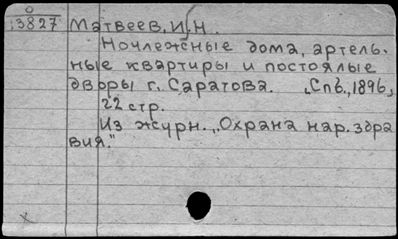 0
3827 Матвеев, И.Н.
Ночлежные дома, артель-
ные квартиры и постоялые
дворы г. Саратова. Спб., 1896,
22 стр.
Из журн. „Охрана нар. здра
вия."
x